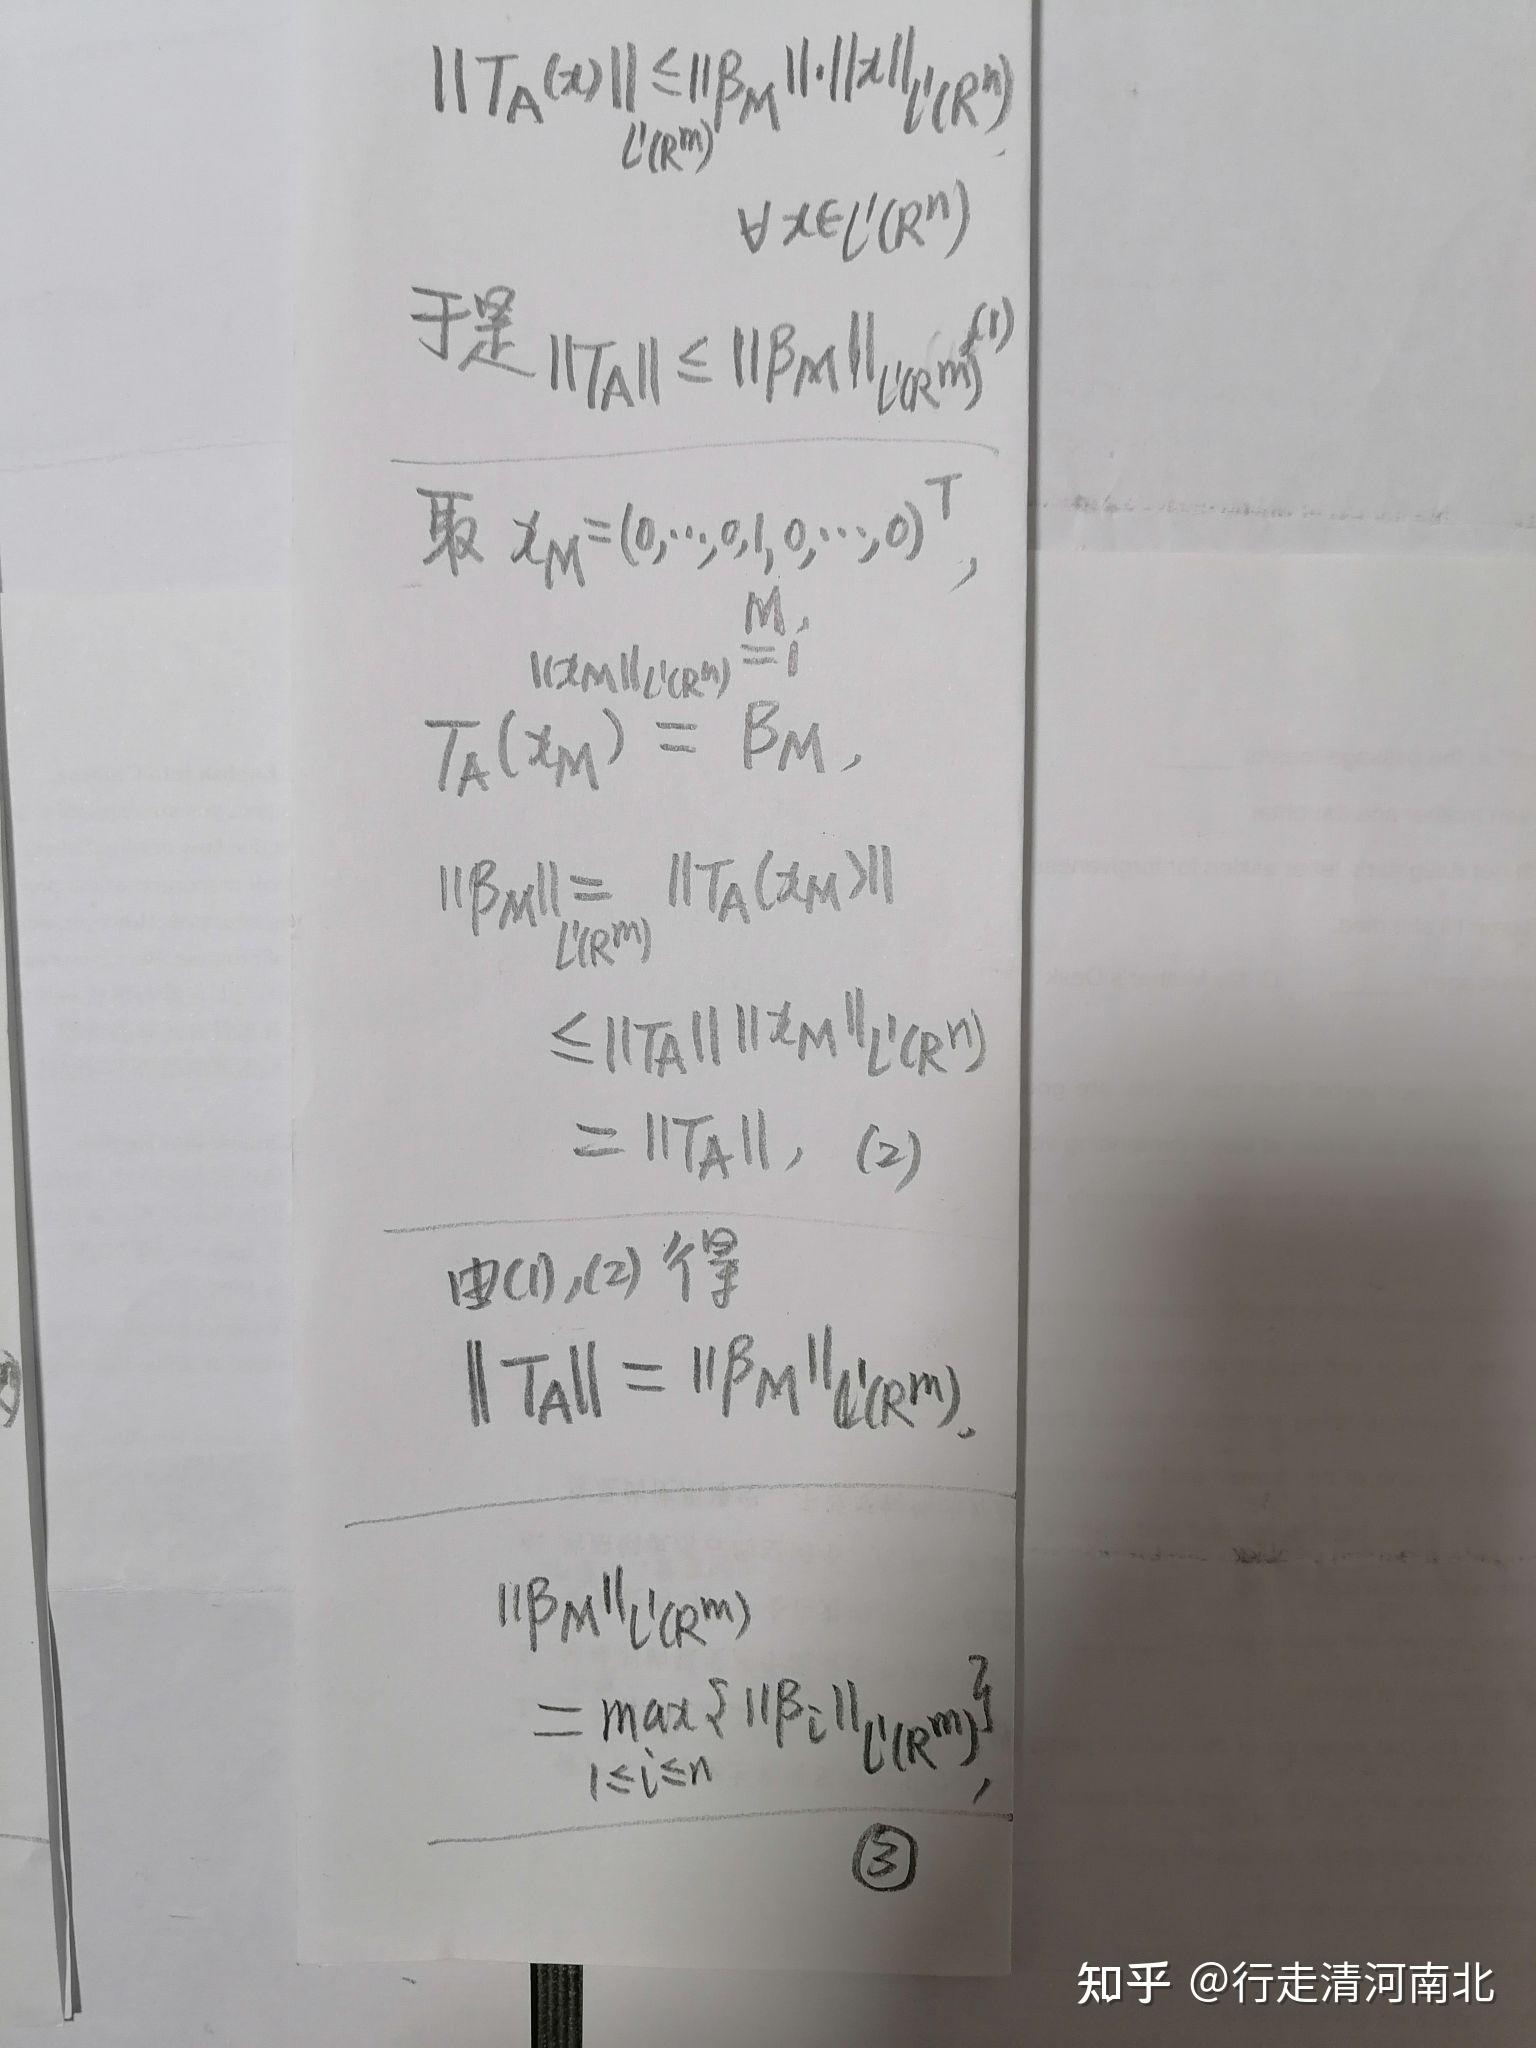 ||T_A(x)||_{l^1(R^m)} ≤ ||β_M||·||x||_{l^1(R^n)},
∀ x∈l^1(R^n)
于是 ||T_A|| ≤ ||β_M||_{l^1(R^m)} (1)
取 x_M=(0,…,0,1,0,…,0)^T,
M,
||x_M||_{l^1(R^n)} = 1
T_A(x_M) = β_M,
||β_M||_{l^1(R^m)} = ||T_A(x_M)||
≤ ||T_A|| ||x_M||_{l^1(R^n)}
= ||T_A||, (2)
由(1),(2) 得
||T_A|| = ||β_M||_{l^1(R^m)}.
||β_M||_{l^1(R^m)}
= max_{1≤i≤n} {||β_i||_{l^1(R^m)}},
③
知乎 @行走清河南北